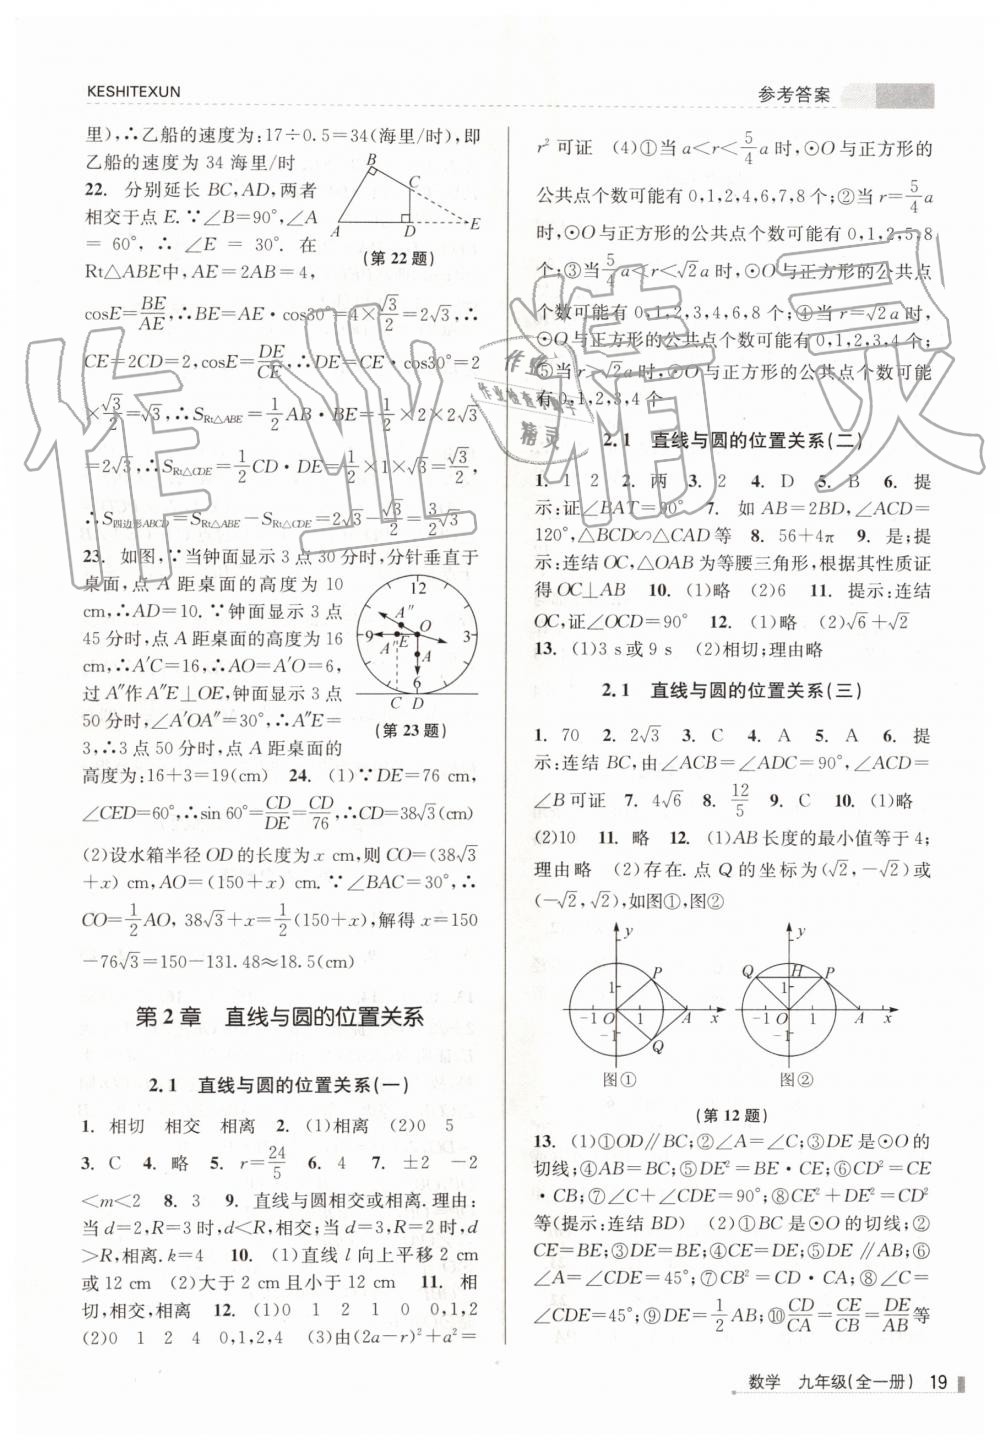 KESHITEXUN
参考答案
里),∴乙船的速度为:17÷0.5=34(海里/时),即
乙船的速度为 34 海里/时
22. 分别延长 BC,AD,两者
相交于点 E.∵∠B=90°,∠A
=60°,∴∠E=30°.在
Rt△ABE中,AE=2AB=4,
B
C
A
D
E
(第 22 题)
cosE=BE/AE,∴BE=AE·cos30°=4×√3/2=2√3,∴
CE=2CD=2,cosE=DE/CE,∴DE=CE·cos30°=2
×√3/2=√3,∴S_Rt△ABE=1/2AB·BE=1/2×2×2√3
=2√3,S_Rt△CDE=1/2CD·DE=1/2×1×√3=√3/2,
∴S_四边形ABCD=S_Rt△ABE-S_Rt△CDE=2√3-√3/2=3/2√3
23. 如图,∵当钟面显示 3 点 30 分时,分针垂直于
桌面,点 A 距桌面的高度为 10
cm,∴AD=10.∵钟面显示 3 点
45 分时,点 A 距桌面的高度为 16
cm,∴A′C=16,∴AO=A′O=6,
过 A″作A″E⊥OE,钟面显示 3 点
50 分时,∠A′OA″=30°,∴A″E=
3,∴3 点 50 分时,点 A 距桌面的
12
A″
O
9
E
3
A′
A
6
C D
(第 23 题)
高度为:16+3=19(cm) 24. (1)∵DE=76 cm,
∠CED=60°,∴sin 60°=CD/DE=CD/76,∴CD=38√3(cm)
(2)设水箱半径 OD 的长度为 x cm,则 CO=(38√3
+x) cm,AO=(150+x) cm.∵∠BAC=30°,∴
CO=1/2AO,38√3+x=1/2(150+x),解得 x=150
-76√3=150-131.48≈18.5(cm)
第 2 章 直线与圆的位置关系
2.1 直线与圆的位置关系(一)
1. 相切 相交 相离 2. (1)相离 (2)0 5
3. C 4. 略 5. r=24/5 6. 4 7. ±2 -2
<m<2 8. 3 9. 直线与圆相交或相离.理由:
当 d=2,R=3 时,d<R,相交;当 d=3,R=2 时,d
>R,相离.k=4 10. (1)直线 l 向上平移 2 cm
或 12 cm (2)大于 2 cm 且小于 12 cm 11. 相
切,相交,相离 12. (1)0 1 2 1 0 0,1,2
(2)0 1 2 4 0,1,2,4 (3)由(2a-r)²+a²=
r² 可证 (4)①当 a<r<5/4a 时,⊙O 与正方形的
公共点个数可能有 0,1,2,4,6,7,8 个;②当 r=5/4a
时,⊙O 与正方形的公共点个数可能有 0,1,2,5,8
个;③当5/4a<r<√2a时,⊙O 与正方形的公共点
个数可能有 0,1,2,3,4,6,8 个;④当 r=√2a 时,
⊙O 与正方形的公共点个数可能有 0,1,2,3,4 个;
⑤当 r>√2a 时,⊙O 与正方形的公共点个数可能
有 0,1,2,3,4 个
2.1 直线与圆的位置关系(二)
1. 1 2 2. 两 3. 2 4. D 5. B 6. 提
示:证∠BAT=90° 7. 如 AB=2BD,∠ACD=
120°,△BCD∽△CAD 等 8. 56+4π 9. 是;提
示:连结 OC,△OAB 为等腰三角形,根据其性质证
得 OC⊥AB 10. (1)略 (2)6 11. 提示:连结
OC,证∠OCD=90° 12. (1)略 (2)√6+√2
13. (1)3 s或 9 s (2)相切;理由略
2.1 直线与圆的位置关系(三)
1. 70 2. 2√3 3. C 4. A 5. A 6. 提
示:连结 BC,由∠ACB=∠ADC=90°,∠ACD=
∠B可证 7. 4√6 8. 12/5 9. C 10. (1)略
(2)10 11. 略 12. (1)AB 长度的最小值等于 4;
理由略 (2)存在.点 Q 的坐标为(√2,-√2)或
(-√2,√2),如图①,图②
y
P
1
-1 O 1 A x
-1
Q
图①
y
Q H P
1
-1 O 1 A x
-1
图②
(第 12 题)
13. (1)①OD∥BC;②∠A=∠C;③DE 是⊙O 的
切线;④AB=BC;⑤DE²=BE·CE;⑥CD²=CE
·CB;⑦∠C+∠CDE=90°;⑧CE²+DE²=CD²
等(提示:连结 BD) (2)①BC 是⊙O 的切线;②
CE=BE;③DE=BE;④DE=CE;⑤DE∥AB;⑥
∠A=∠CDE=45°;⑦CB²=CD·CA;⑧∠C=
∠CDE=45°;⑨DE=1/2AB;⑩CD/CA=CE/CB=DE/AB等
数学 九年级(全一册) 19
作业精灵
作业
作业检查小助手
精灵